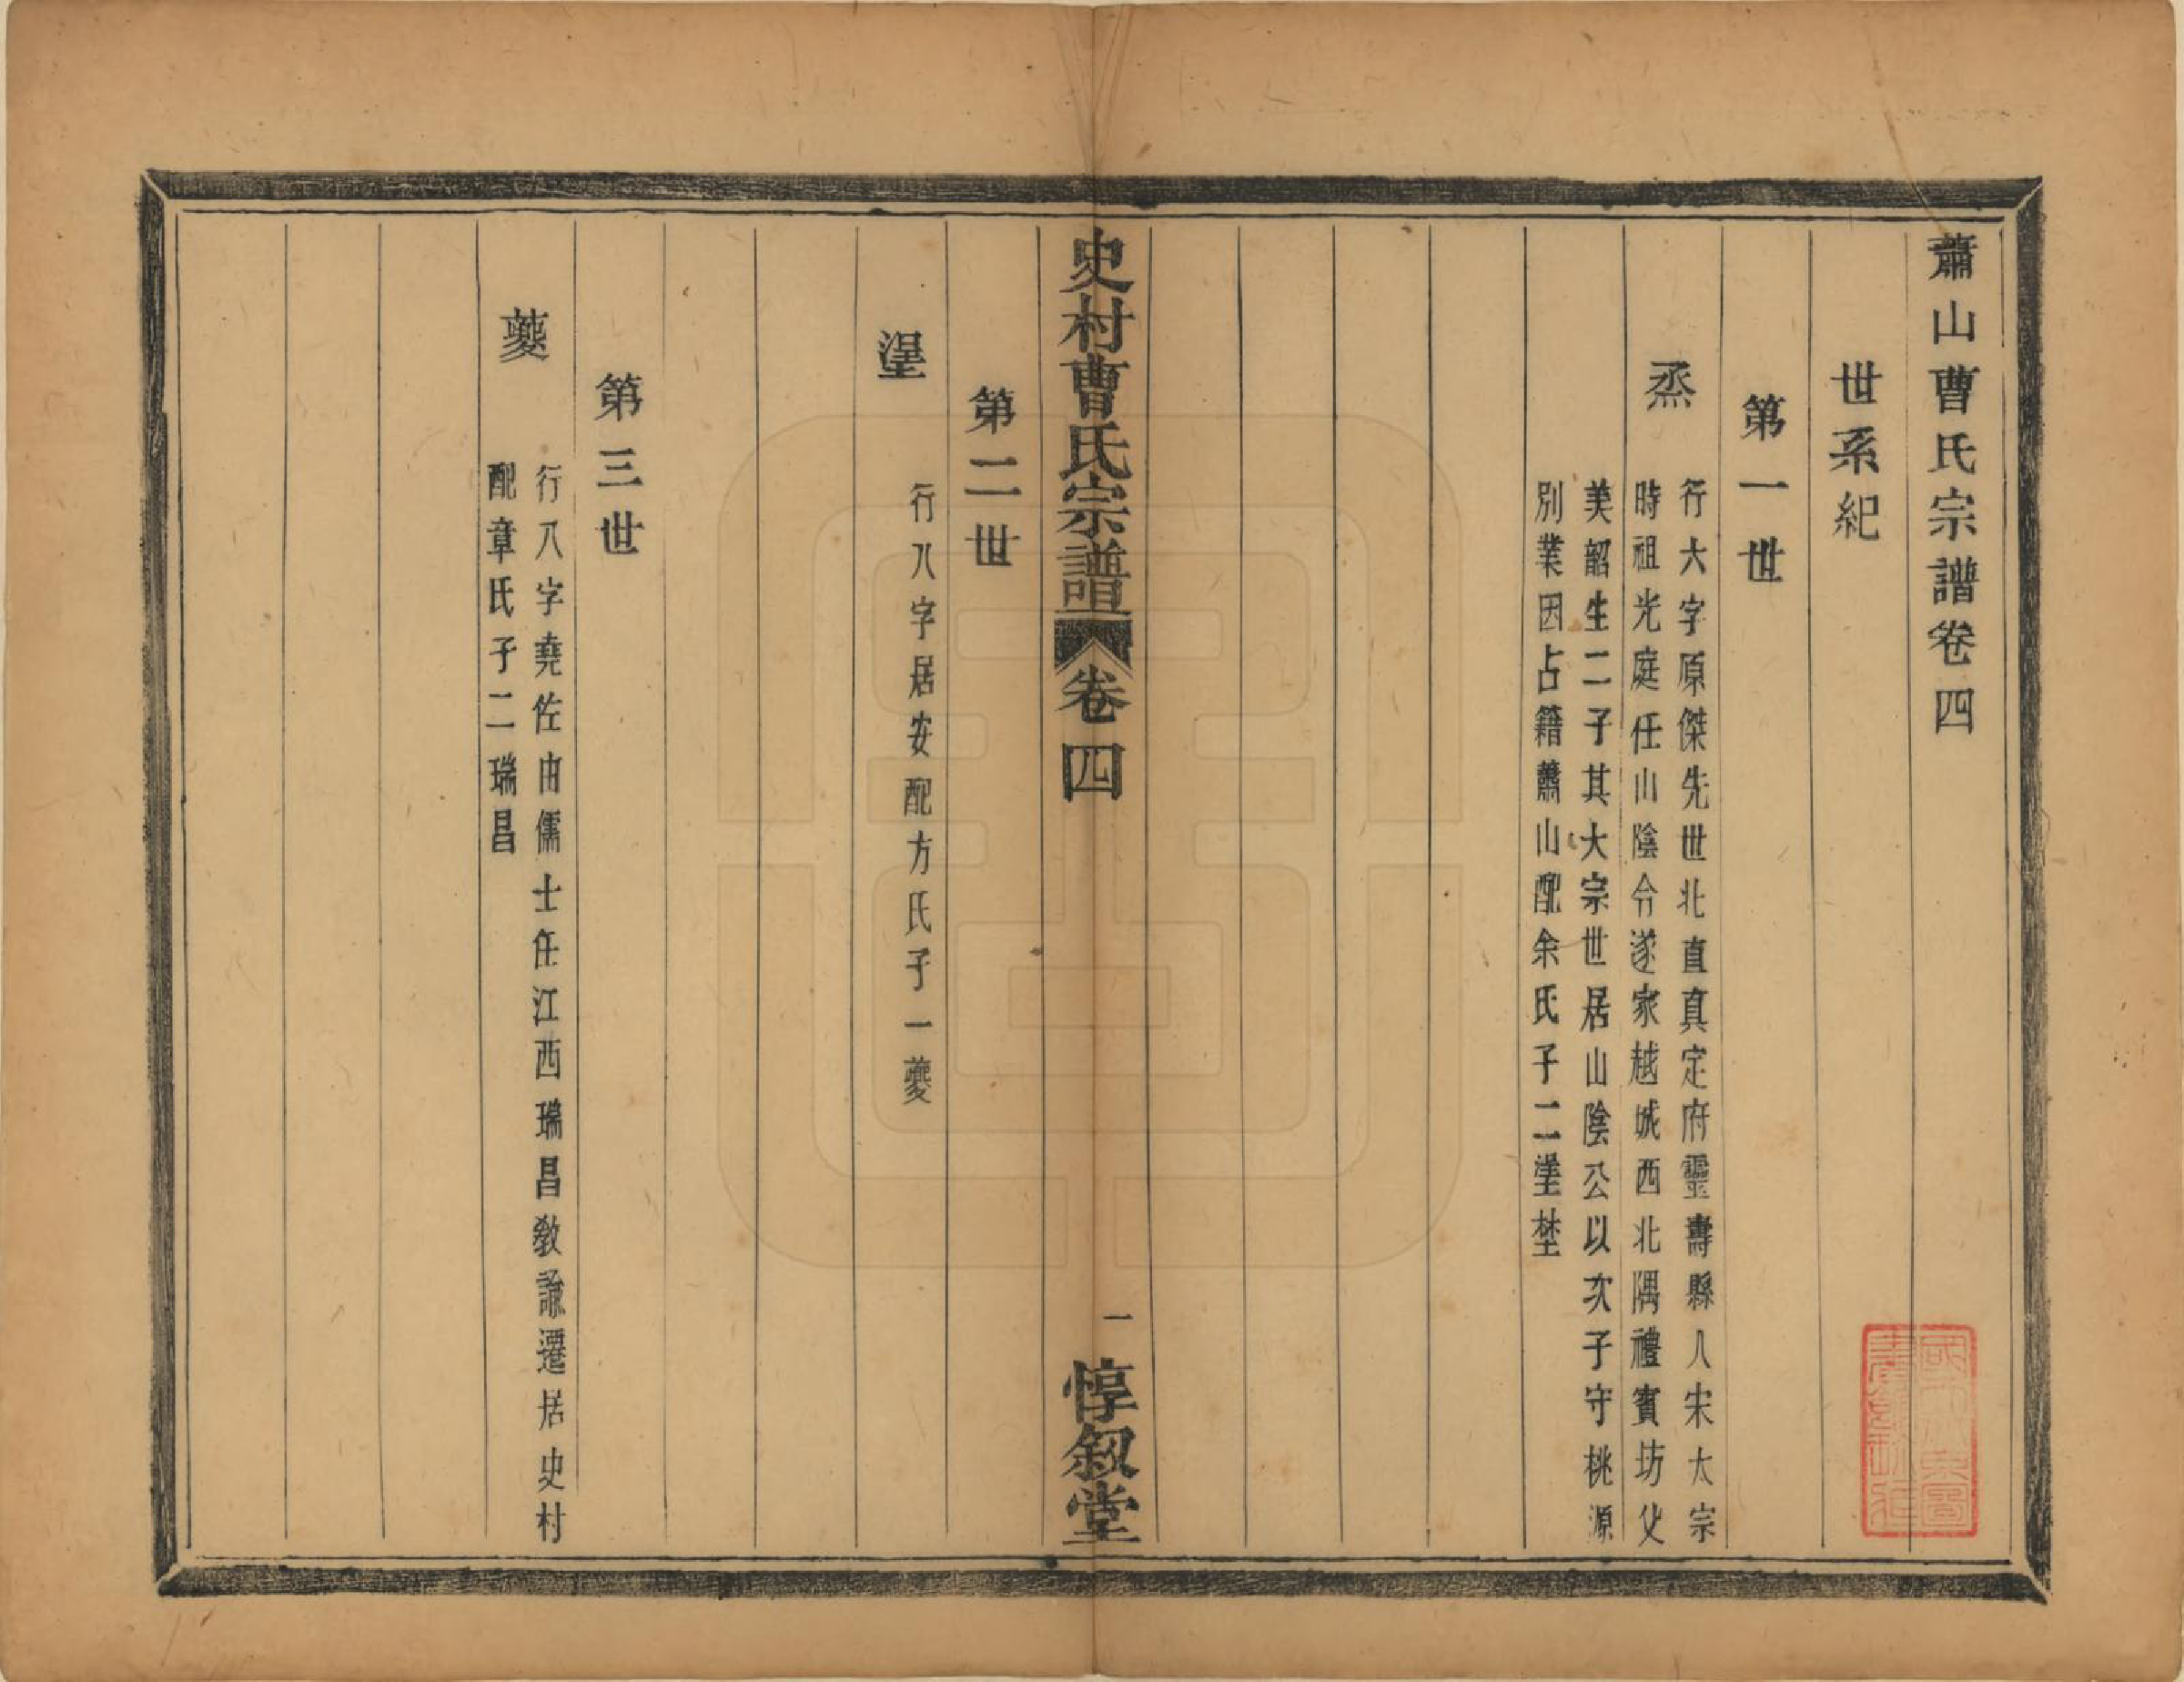 蕭山曹氏宗譜卷四
世系紀
第一世
烝
行大字原傑先世北直真定府靈壽縣人宋太宗
時祖光庭任山陰令遂家越城西北隅禮賓坊父
美韶生二子其大宗世居山陰公以次子守桃源
別業因占籍蕭山配余氏子二埕埜
史村曹氏宗譜
卷四
一
惇叙堂
第二世
行八字居安配方氏子一夔
第三世
夔
行八字堯佐由儒士任江西瑞昌敎諭遷居史村
配章氏子二瑞昌